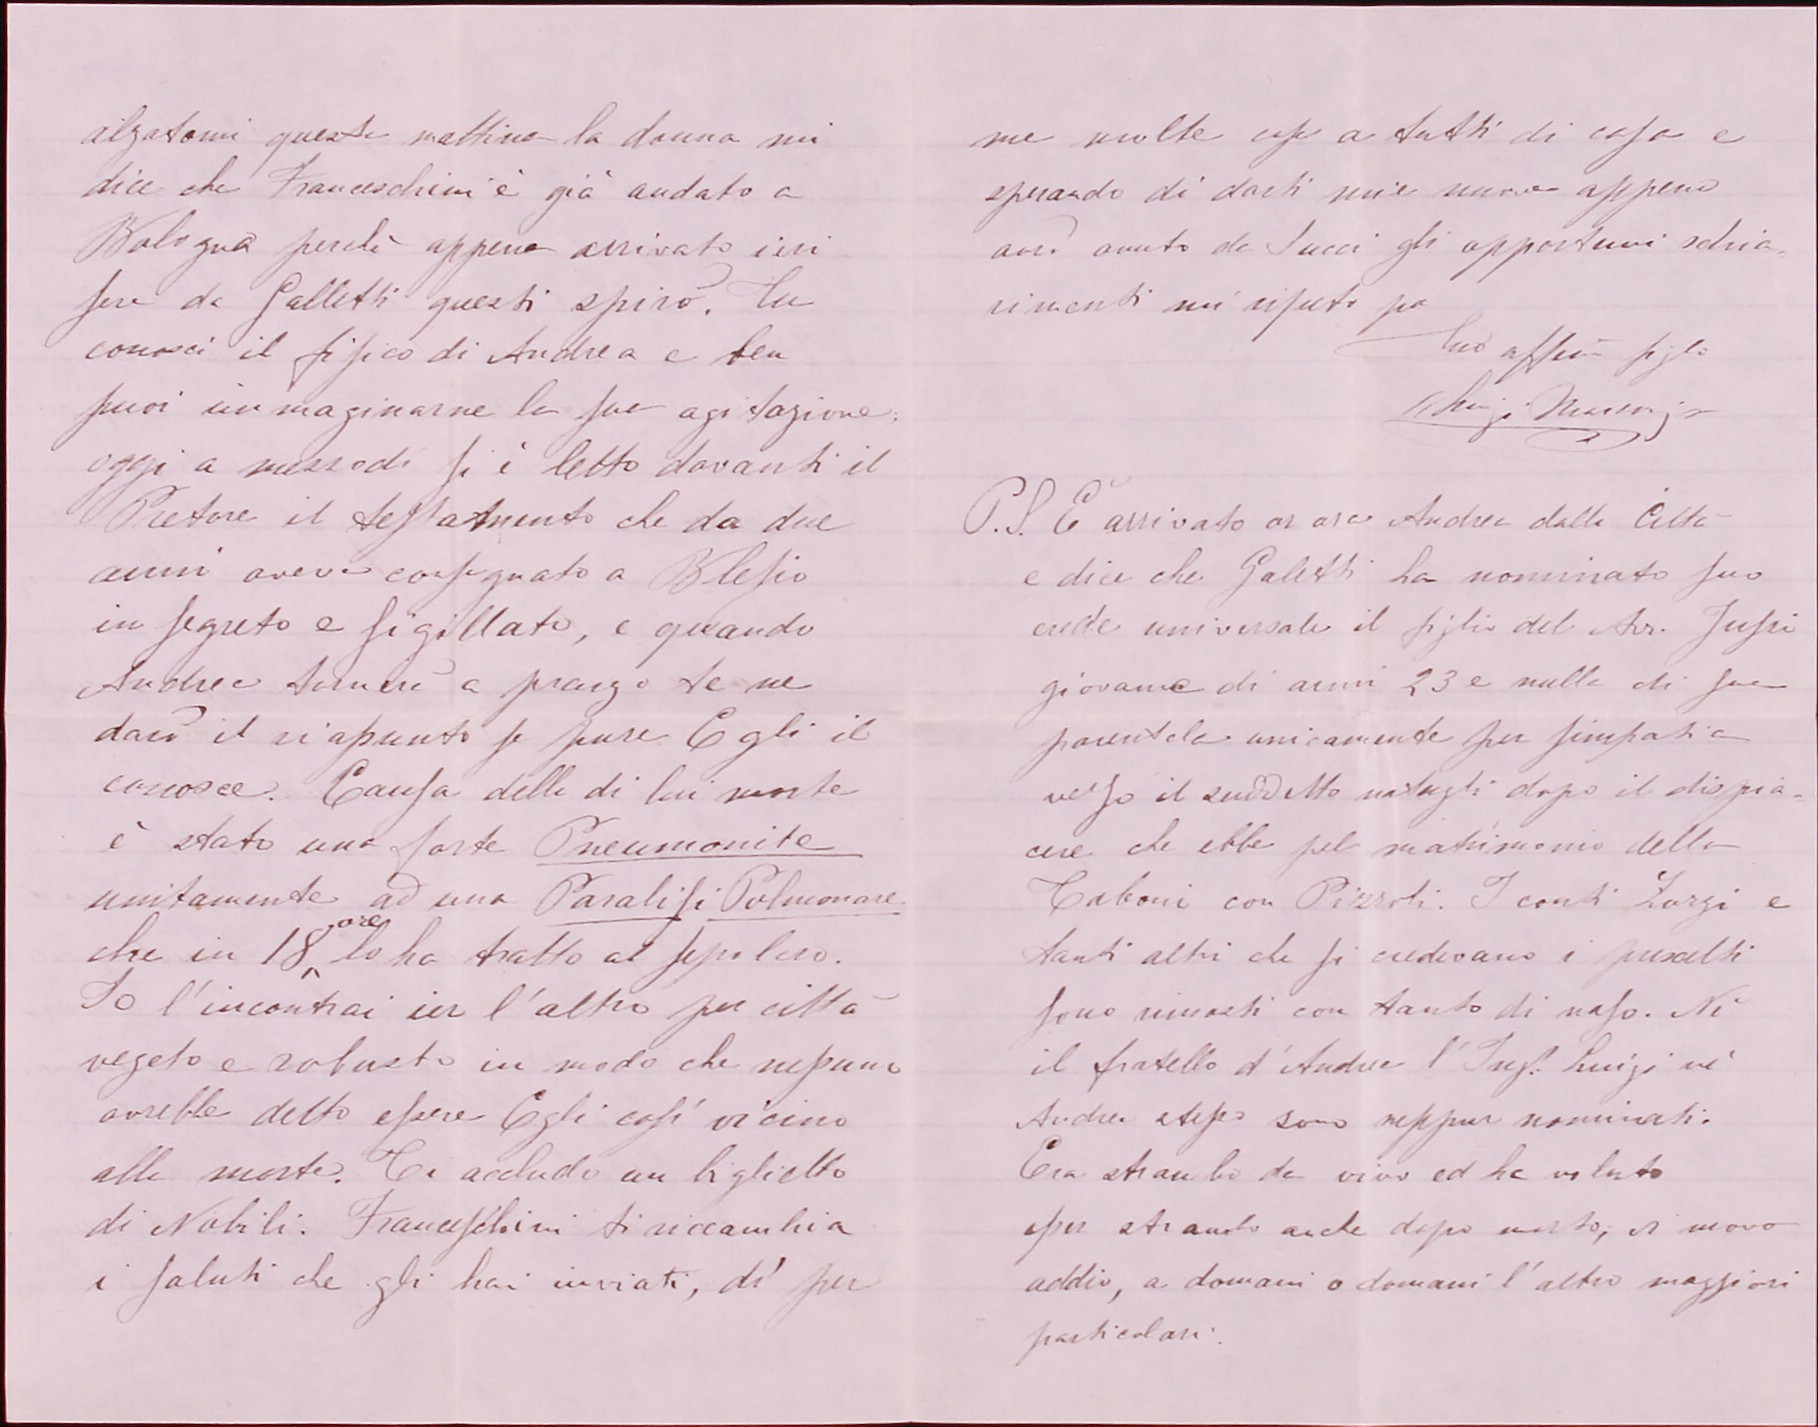 alzatomi questa mattina la donna mi
dice che Franceschini è già andato a
Bologna perchè appena arrivato ieri
sera da Galletti questi spirò. Tu
conosci il fisico di Andrea e ben
puoi immaginarne la sua agitazione;
oggi a mezzodì si è letto davanti il
Pretore il testamento che da due
anni aveva consegnato a Blesio
in segreto e sigillato, e quando
Andrea tornerà a pranzo te ne
darò il riapunto se pure Egli il
conosce. Causa della di lui morte
è stato una forte Pneumonite
unitamente ad una Paralisi Polmonare
che in 18 ore lo ha tratto al sepolcro.
Io l'incontrai ier l'altro per città
vegeto e robusto in modo che nessuno
avrebbe detto essere Egli così vicino
alla morte. Ti accludo un biglietto
di Nobili. Franceschini ti riccambia
i saluti che gli hai inviati, di' per
me molte cose a tutti di casa e
sperando di darti mie nuove appena
avrò avuto da Succi gli opportuni schia-
rimenti mi ripeto pa
Tuo affmo figlio
Luigi
P.S. È arrivato or ora Andrea dalla Città
e dice che Galetti ha nominato suo
erede universale il figlio del Avv. Jussi
giovane di anni 23 e nulla di sua
parentela unicamente per simpatia
verso il suddetto natagli dopo il dispia-
cere che ebbe pel matrimonio della
Taboni con Pizzoli. I conti Zorzi e
tanti altri che si credevano i prescelti
sono rimasti con tanto di naso. Nè
il fratello d'Andrea l'Ing. Luigi nè
Andrea stesso sono neppur nominati.
Era strambo da vivo ed ha voluto
esser strambo anche dopo morto, di nuovo
addio, a domani o domani l'altro maggiori
particolari.